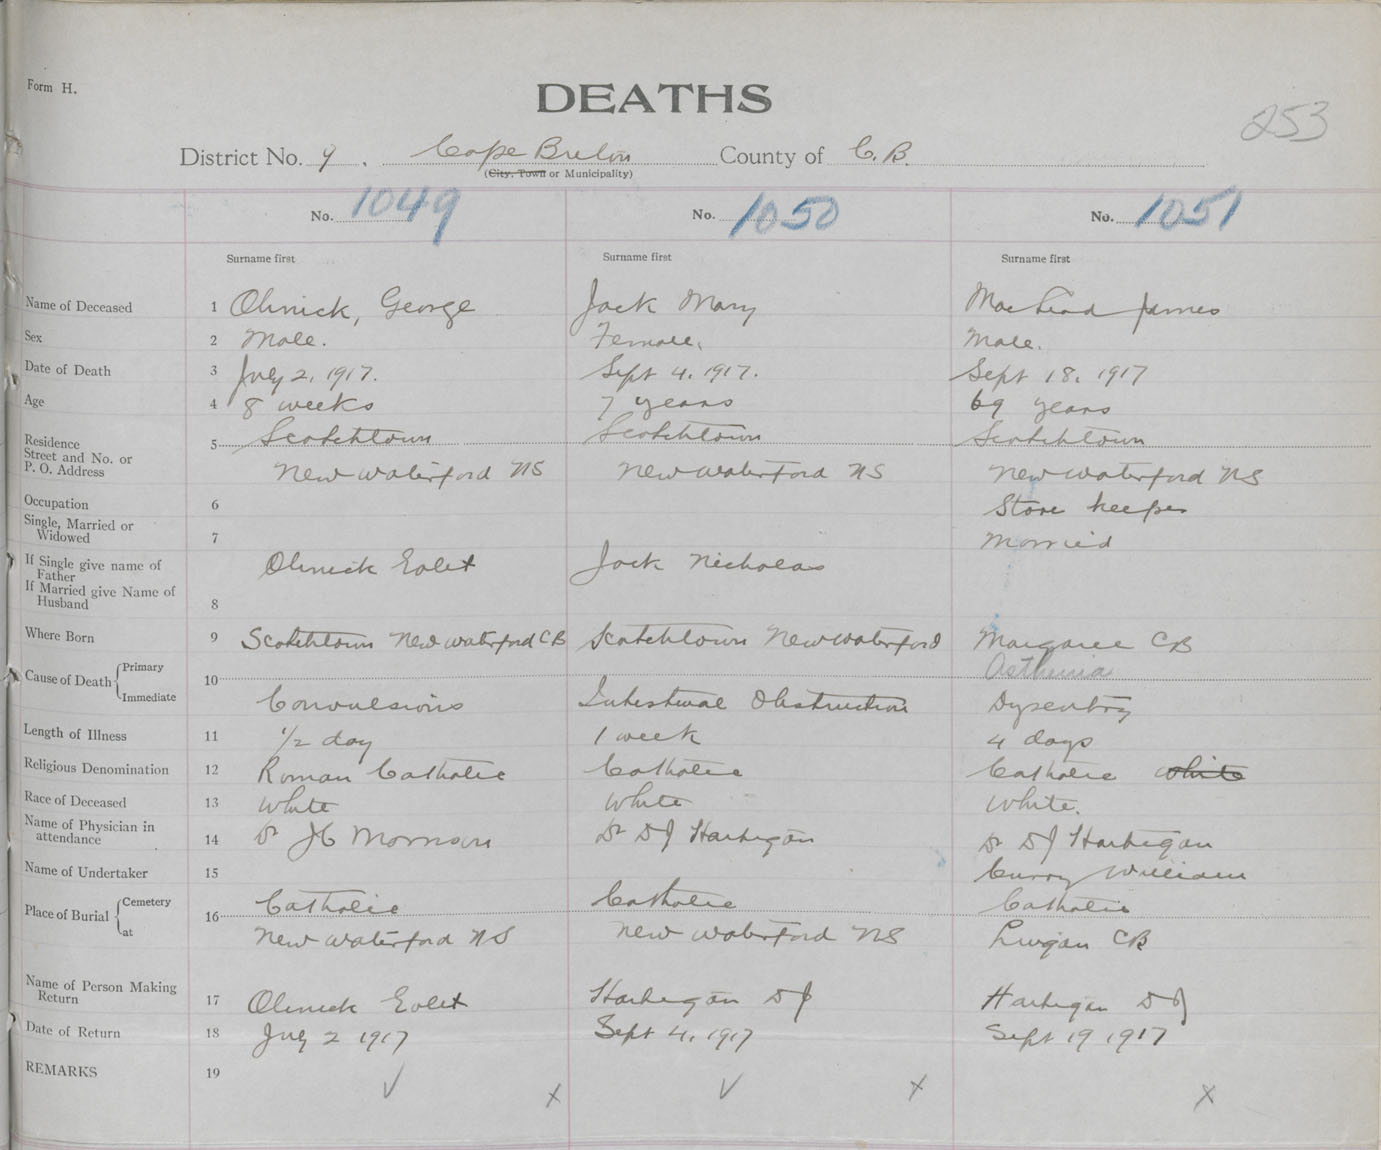 Form H.
DEATHS
253
District No. 9. Cape Breton County of C.B.
(City, Town or Municipality)
No. 1049 No. 1050 No. 1051
Surname first Surname first Surname first
Name of Deceased 1 Olinick, George Jack Mary MacLeod James
Sex 2 Male. Female. Male.
Date of Death 3 July 2, 1917. Sept 4, 1917. Sept 18, 1917
Age 4 8 weeks 7 years 69 years
Residence 5 Scotchtown Scotchtown Scotchtown
Street and No. or
P. O. Address New Waterford NS New Waterford NS New Waterford NS
Occupation 6 Store keeper
Single, Married or
Widowed 7 Married
If Single give name of
Father Olinick Jack Nicholas
If Married give Name of
Husband 8
Where Born 9 Scotchtown New Waterford CB Scotchtown New Waterford Margaree CB
Cause of Death Primary 10 Asthenia
Immediate Convulsions Intestinal Obstruction Dysentry
Length of Illness 11 1/2 day 1 week 4 days
Religious Denomination 12 Roman Catholic Catholic Catholic white
Race of Deceased 13 White White White.
Name of Physician in
attendance 14 Dr JC Morrison Dr DJ Hartigan Dr DJ Hartigan
Name of Undertaker 15 Curry William
Place of Burial Cemetery 16 Catholic Catholic Catholic
at New Waterford NS New Waterford NS Lingan CB
Name of Person Making
Return 17 Olinick Hartigan DJ Hartigan DJ
Date of Return 18 July 2 1917 Sept 4, 1917 Sept 19 1917
REMARKS 19